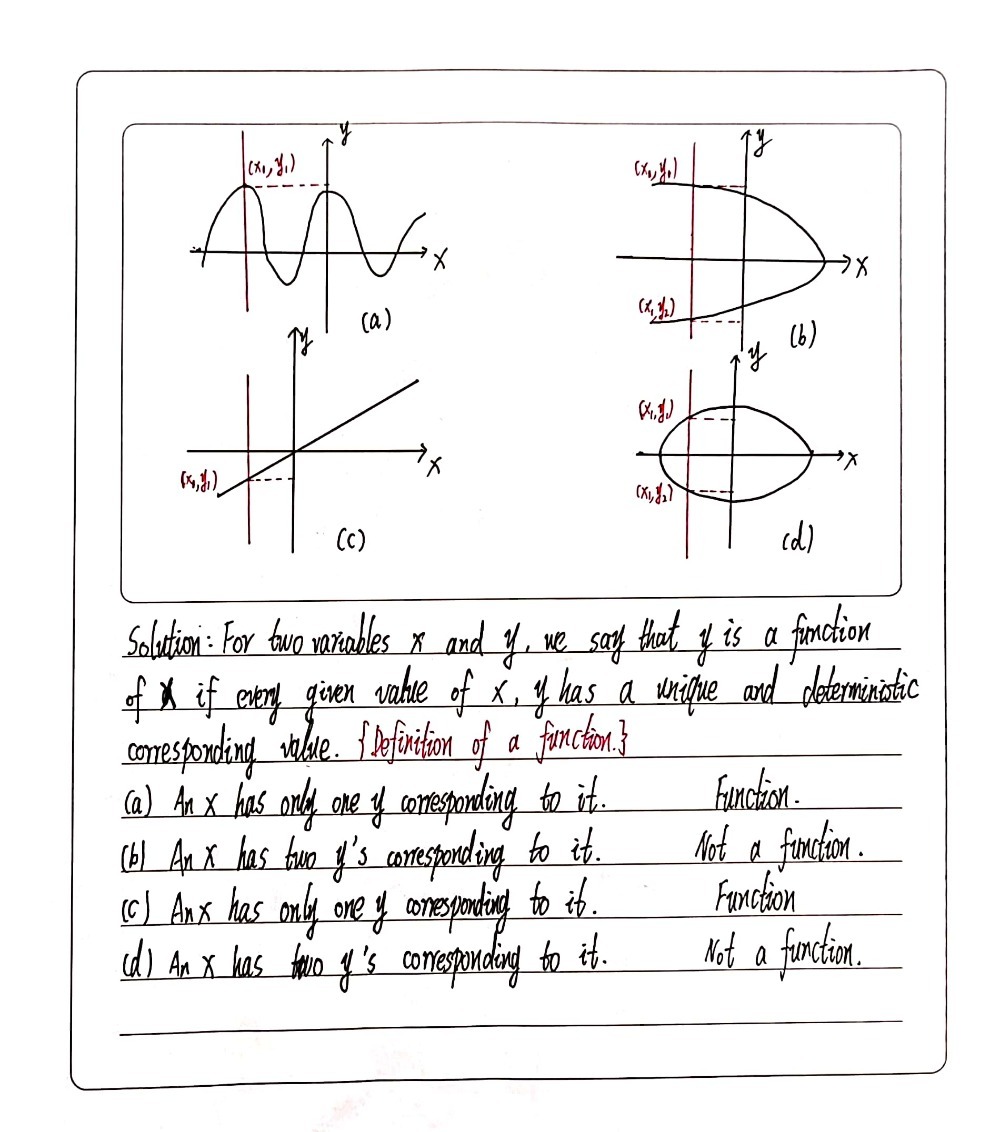 y
(x₁, y₁)
x
(a)
y
(x₁, y₁)
x
(x₁, y₂)
(b)
y
x
(x₁, y₁)
(c)
y
(x₁, y₁)
x
(x₁, y₂)
(d)
Solution: For two variables x and y, we say that y is a function
of x if every given value of x, y has a unique and deterministic
corresponding value. {Definition of a function.}
(a) An x has only one y corresponding to it. Function.
(b) An x has two y's corresponding to it. Not a function.
(c) An x has only one y corresponding to it. Function
(d) An x has two y's corresponding to it. Not a function.